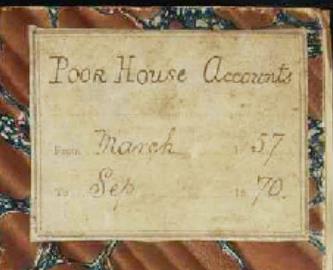 Poor House Accounts
From March 57
To Sep 18 70.